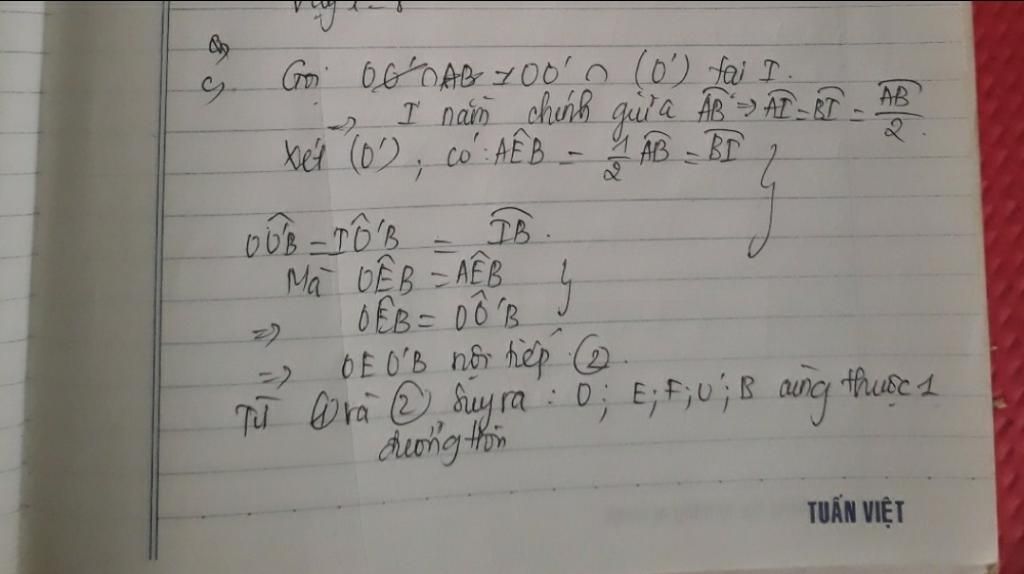 c) Gọi OO' ∩ AB ⇒ OO' ∩ (O') tại I.
=> I nằm chính giữa AB => AI = BI = AB/2.
Xét (O'), có: AÊB = 1/2 AB = BI }
OÔ'B = IÔ'B = IB.
Mà OÊB = AÊB }
=> OÊB = OÔ'B
=> OEO'B nội tiếp (2).
Từ (1) và (2) suy ra: O; E; F; O'; B cùng thuộc 1
đường tròn
TUẤN VIỆT